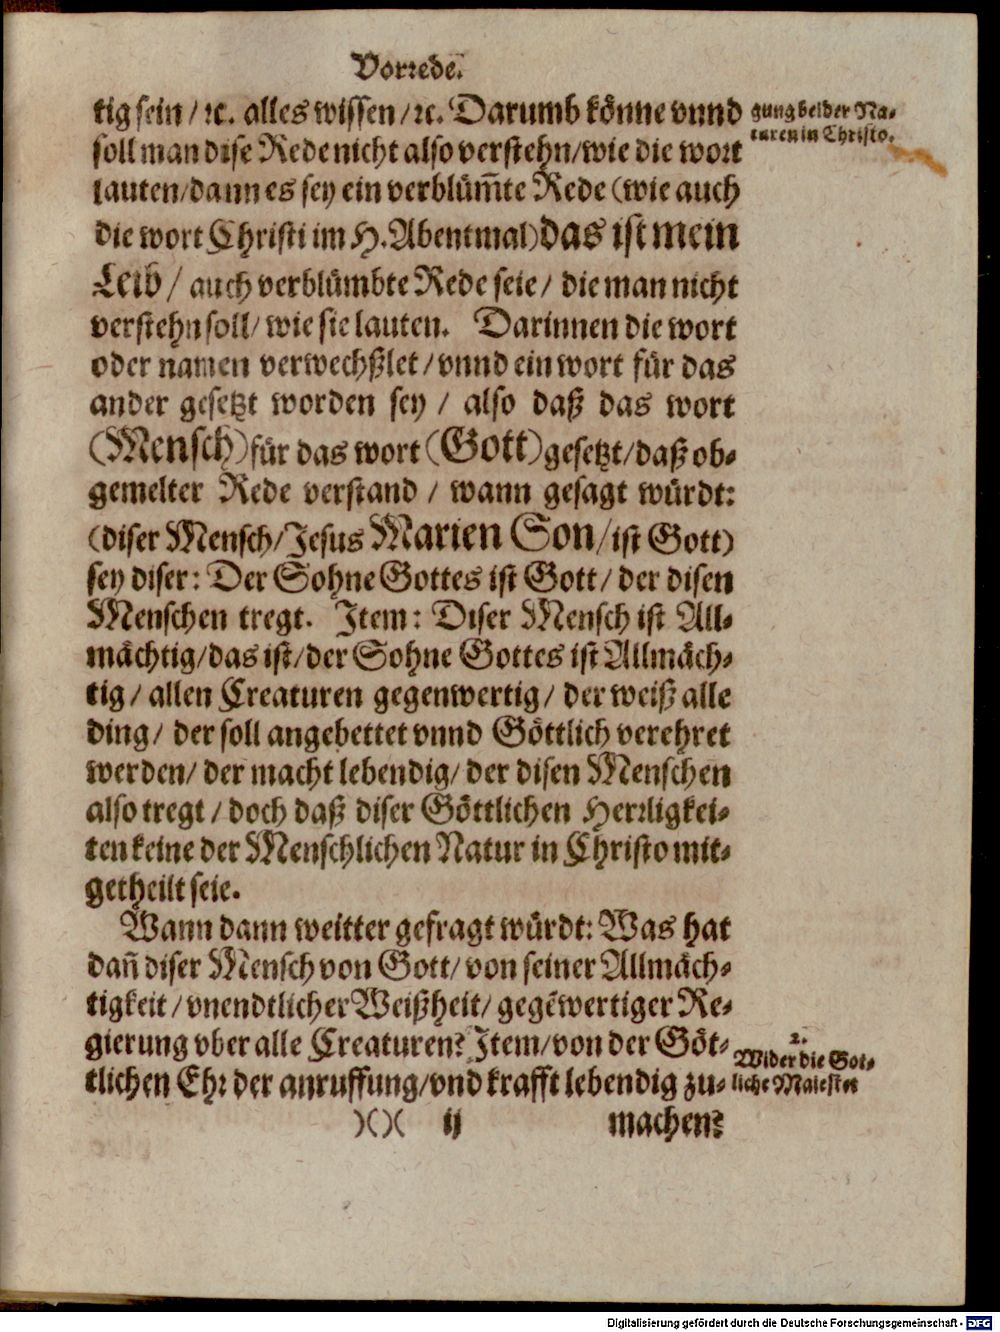 Vorrede.
tig sein / ꝛc. alles wissen / ꝛc. Darumb könne vnnd
soll man dise Rede nicht also verstehn / wie die wort
lauten / dann es sey ein verblüm̄te Rede (wie auch
die wort Christi im H. Abentmal) das ist mein
Leib / auch verblümbte Rede seie / die man nicht
verstehn soll / wie sie lauten. Darinnen die wort
oder namen verwechßlet / vnnd ein wort für das
ander gesetzt worden sey / also daß das wort
(Mensch) für das wort (Gott) gesetzt / daß ob-
gemelter Rede verstand / wann gesagt würdt:
(diser Mensch / Jesus Marien Son / ist Gott)
sey diser: Der Sohne Gottes ist Gott / der disen
Menschen tregt. Item: Diser Mensch ist All-
mächtig / das ist / der Sohne Gottes ist Allmäch-
tig / allen Creaturen gegenwertig / der weiß alle
ding / der soll angebettet vnnd Göttlich verehret
werden / der macht lebendig / der disen Menschen
also tregt / doch daß diser Göttlichen Herrligkei-
ten keine der Menschlichen Natur in Christo mit-
getheilt seie.
Wann dann weitter gefragt würdt: Was hat
dan̄ diser Mensch von Gott / von seiner Allmäch-
tigkeit / vnendtlicher Weißheit / gegēwertiger Re-
gierung vber alle Creaturen? Item / von der Göt-
tlichen Ehr der anruffung / vnd krafft lebendig zu-
)()( ij machen?
gung beider Na-
turen in Christo.
2.
Wider die Göt-
liche Maiestet
Digitalisierung gefördert durch die Deutsche Forschungsgemeinschaft - DFG